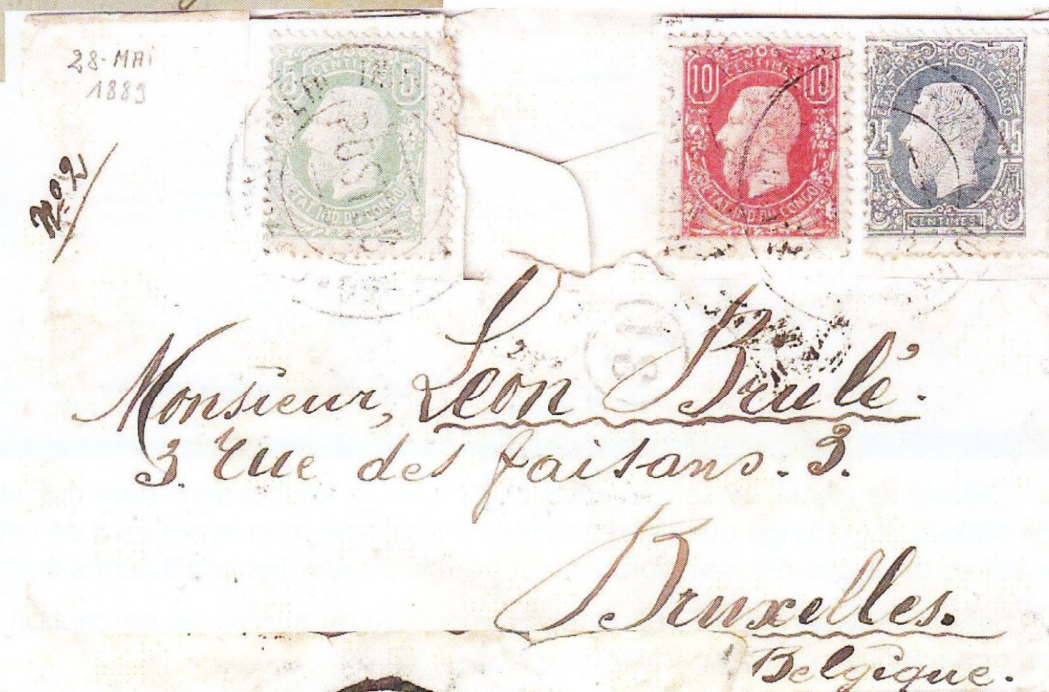 28-MAI
1889
N° 2
5 CENTIMES 5
ETAT IND DU CONGO
10 CENTIMES 10
ETAT IND DU CONGO
ETAT IND DU CONGO
25 25
CENTIMES
18
Monsieur, Léon Brulé.
3. Rue des faisans. 3.
Bruxelles.
Belgique.